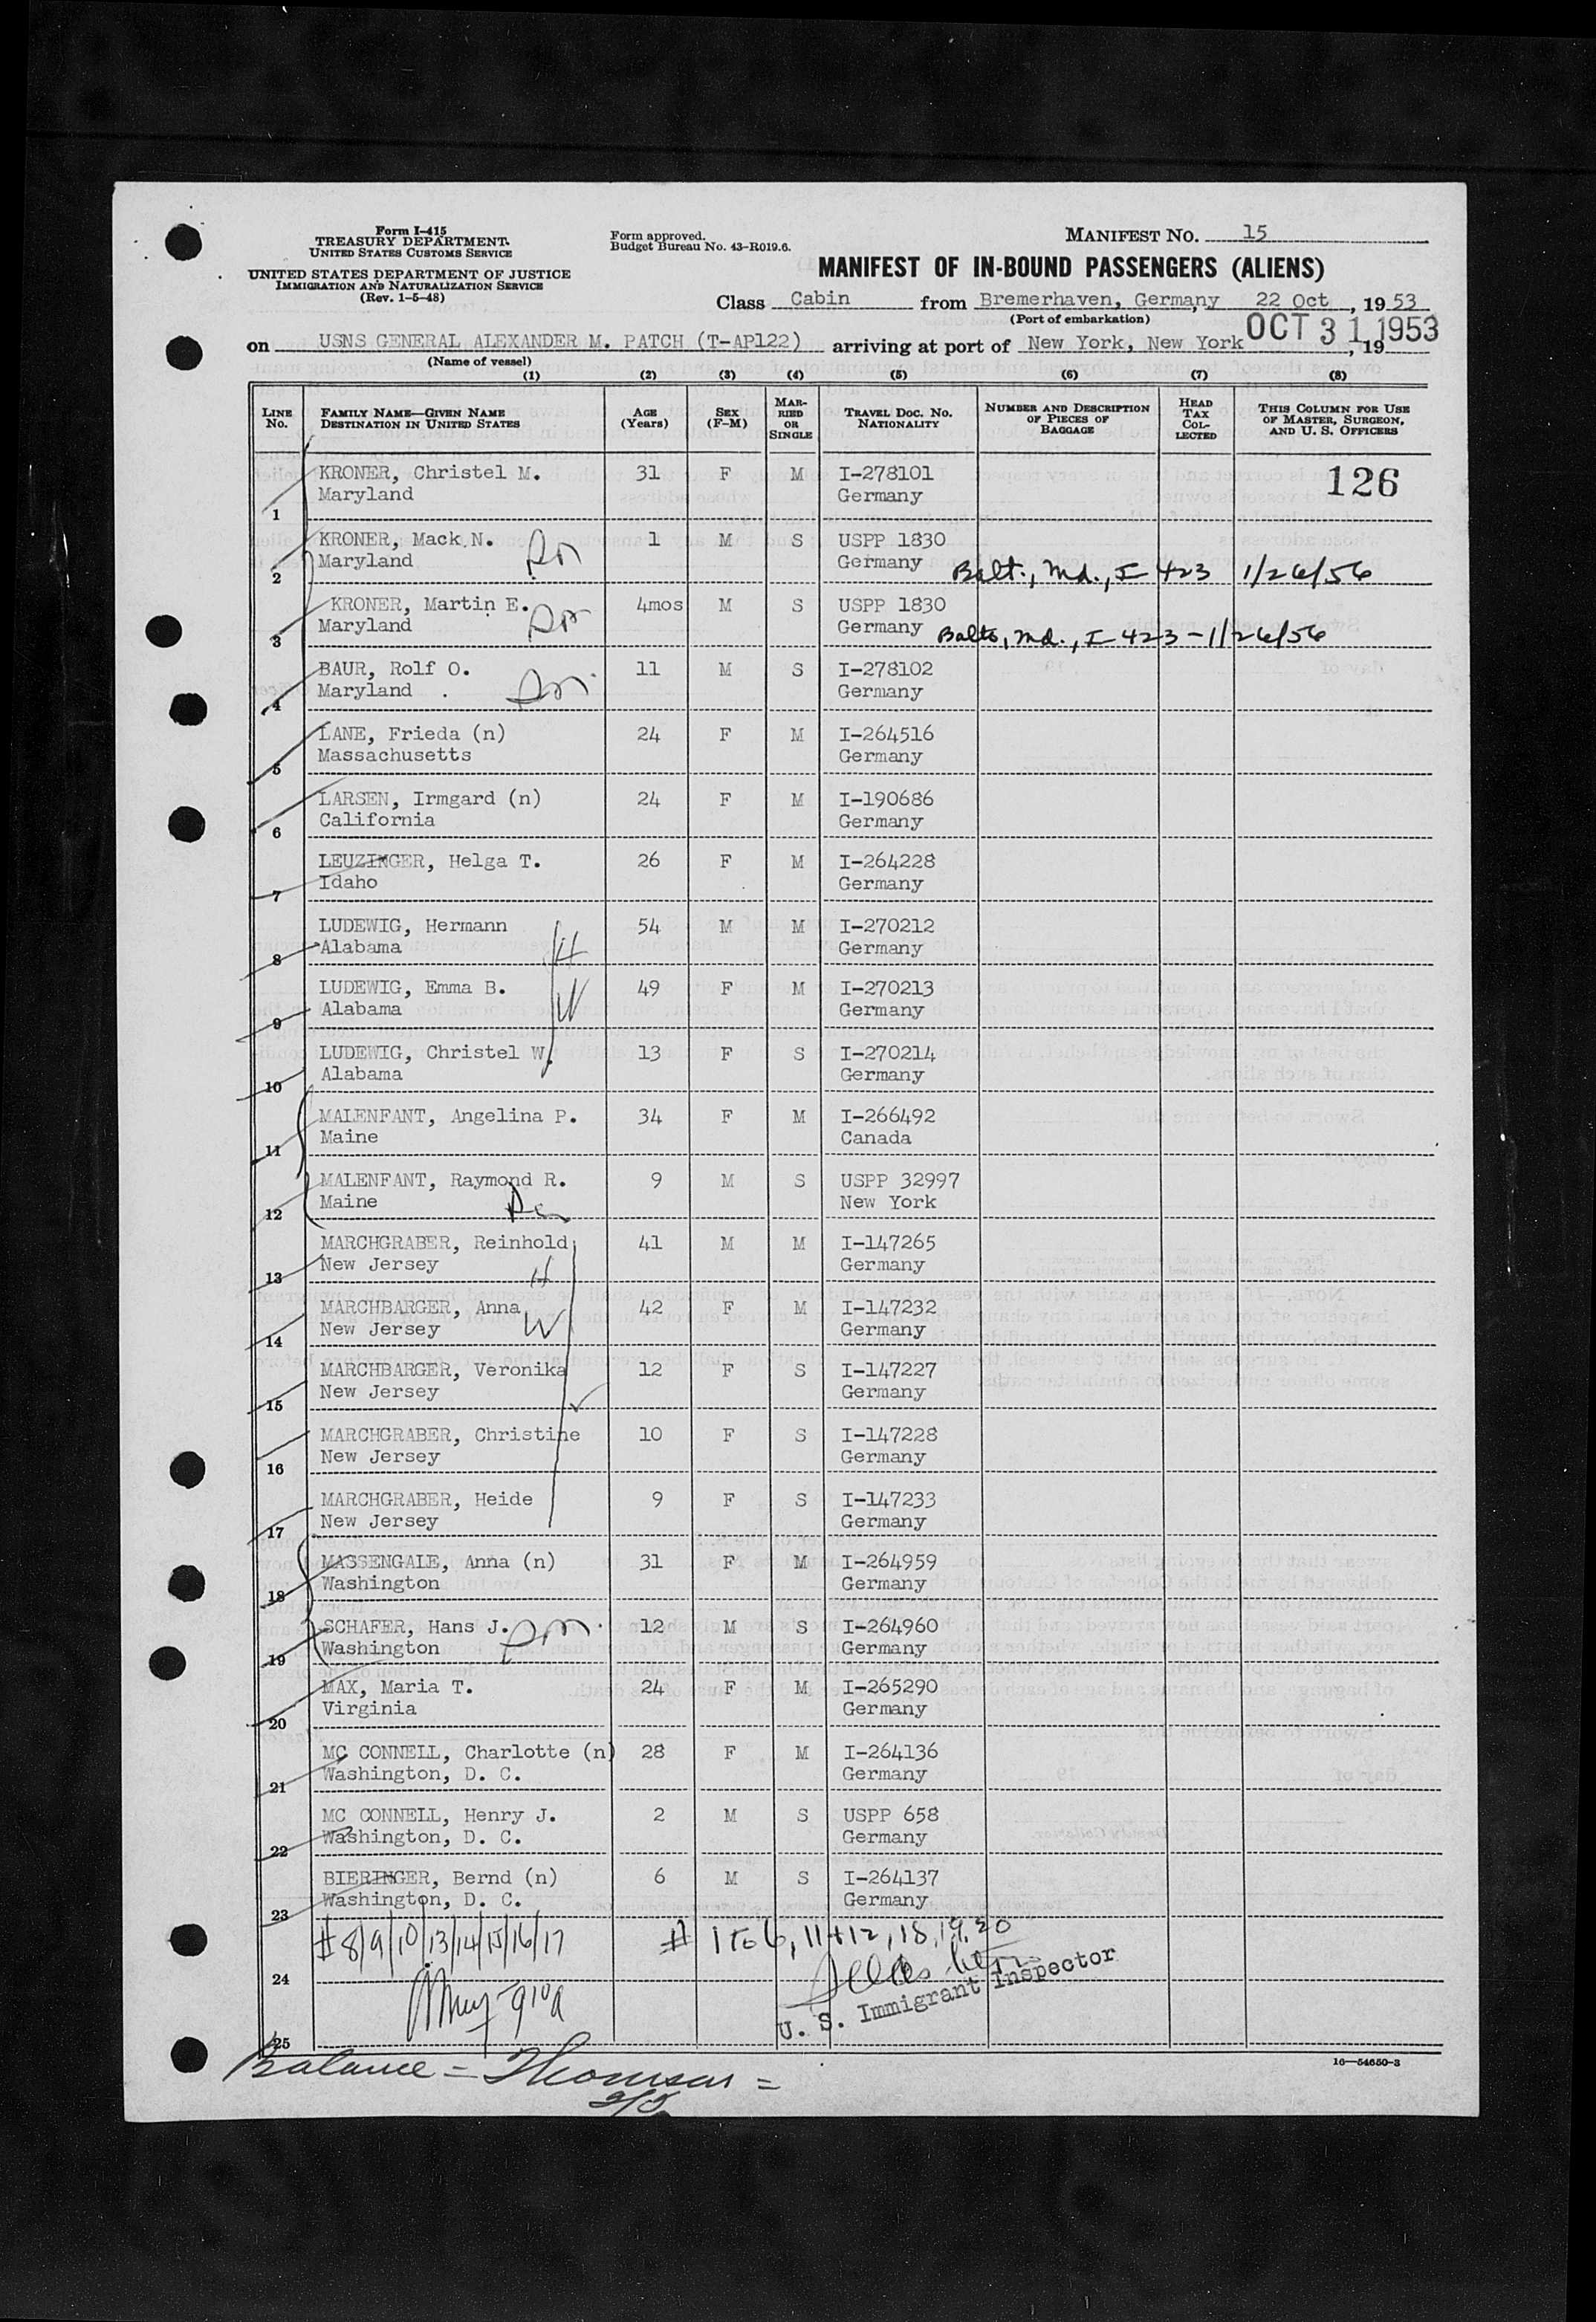 Form I-415
TREASURY DEPARTMENT
UNITED STATES CUSTOMS SERVICE
UNITED STATES DEPARTMENT OF JUSTICE
IMMIGRATION AND NATURALIZATION SERVICE
(Rev. 1-5-48)
Form approved.
Budget Bureau No. 43-R019.6.
MANIFEST NO. 15
MANIFEST OF IN-BOUND PASSENGERS (ALIENS)
Class Cabin from Bremerhaven, Germany, 22 Oct, 1953
(Port of embarkation)
on USNS GENERAL ALEXANDER M. PATCH (T-AP122) arriving at port of New York, New York OCT 31 1953, 19
(Name of vessel)
(1) (2) (3) (4) (5) (6) (7) (8)
LINE No. FAMILY NAME—GIVEN NAME DESTINATION IN UNITED STATES AGE (Years) SEX (F-M) MARRIED OR SINGLE TRAVEL DOC. NO. NATIONALITY NUMBER AND DESCRIPTION OF PIECES OF BAGGAGE HEAD TAX COLLECTED THIS COLUMN FOR USE OF MASTER, SURGEON, AND U. S. OFFICERS
126
KRONER, Christel M. 31 F M I-278101
1 Maryland Germany
KRONER, Mack N. 1 M S USPP 1830
2 Maryland Germany Balt., Md., I 423 1/26/56
KRONER, Martin E. 4mos M S USPP 1830
3 Maryland Germany Balto, Md., I 423-1/26/56
BAUR, Rolf O. 11 M S I-278102
4 Maryland Germany
LANE, Frieda (n) 24 F M I-264516
5 Massachusetts Germany
LARSEN, Irmgard (n) 24 F M I-190686
6 California Germany
LEUZINGER, Helga T. 26 F M I-264228
7 Idaho Germany
LUDEWIG, Hermann 54 M M I-270212
8 Alabama H Germany
LUDEWIG, Emma B. 49 F M I-270213
9 Alabama W Germany
LUDEWIG, Christel W. 13 F S I-270214
10 Alabama Germany
MALENFANT, Angelina P. 34 F M I-266492
11 Maine Canada
MALENFANT, Raymond R. 9 M S USPP 32997
12 Maine New York
MARCHGRABER, Reinhold 41 M M I-147265
13 New Jersey H Germany
MARCHBARGER, Anna 42 F M I-147232
14 New Jersey W Germany
MARCHBARGER, Veronika 12 F S I-147227
15 New Jersey Germany
MARCHGRABER, Christine 10 F S I-147228
16 New Jersey Germany
MARCHGRABER, Heide 9 F S I-147233
17 New Jersey Germany
MASSENGALE, Anna (n) 31 F M I-264959
18 Washington Germany
SCHAFER, Hans J. 12 M S I-264960
19 Washington Germany
MAX, Maria T. 24 F M I-265290
20 Virginia Germany
MC CONNELL, Charlotte (n) 28 F M I-264136
21 Washington, D. C. Germany
MC CONNELL, Henry J. 2 M S USPP 658
22 Washington, D. C. Germany
BIERINGER, Bernd (n) 6 M S I-264137
23 Washington, D. C. Germany
# 8/9/10/13/14/15/16/17 # 1 to 6, 11+12, 18, 19, 20
24
U. S. Immigrant Inspector
25
Balance = Thomson =
16—54650-3